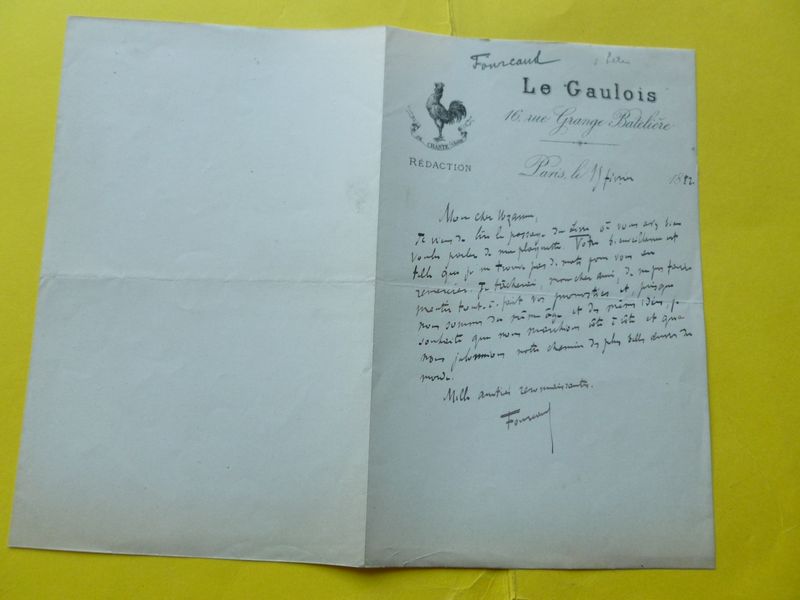 Fourcaud
Le Gaulois
16, rue Grange-Batelière
CHANTE
RÉDACTION
Paris, le 15 février 1882
Mon cher Uzanne,
Je viens de lire le passage du où vous avez bien
voulu parler de ma plaquette. Votre bienveillance est
telle que je ne trouve pas de mots pour vous en
remercier. Je tâcherai, mon cher ami, de ne pas faire
mentir tout-à-fait vos pronostics et, puisque
nous sommes du même âge et des mêmes idées, je
souhaite que nous marchions côte à côte et que
nous jalonnions notre chemin des plus belles œuvres du
monde.
Mille amitiés reconnaissantes.
Fourcaud